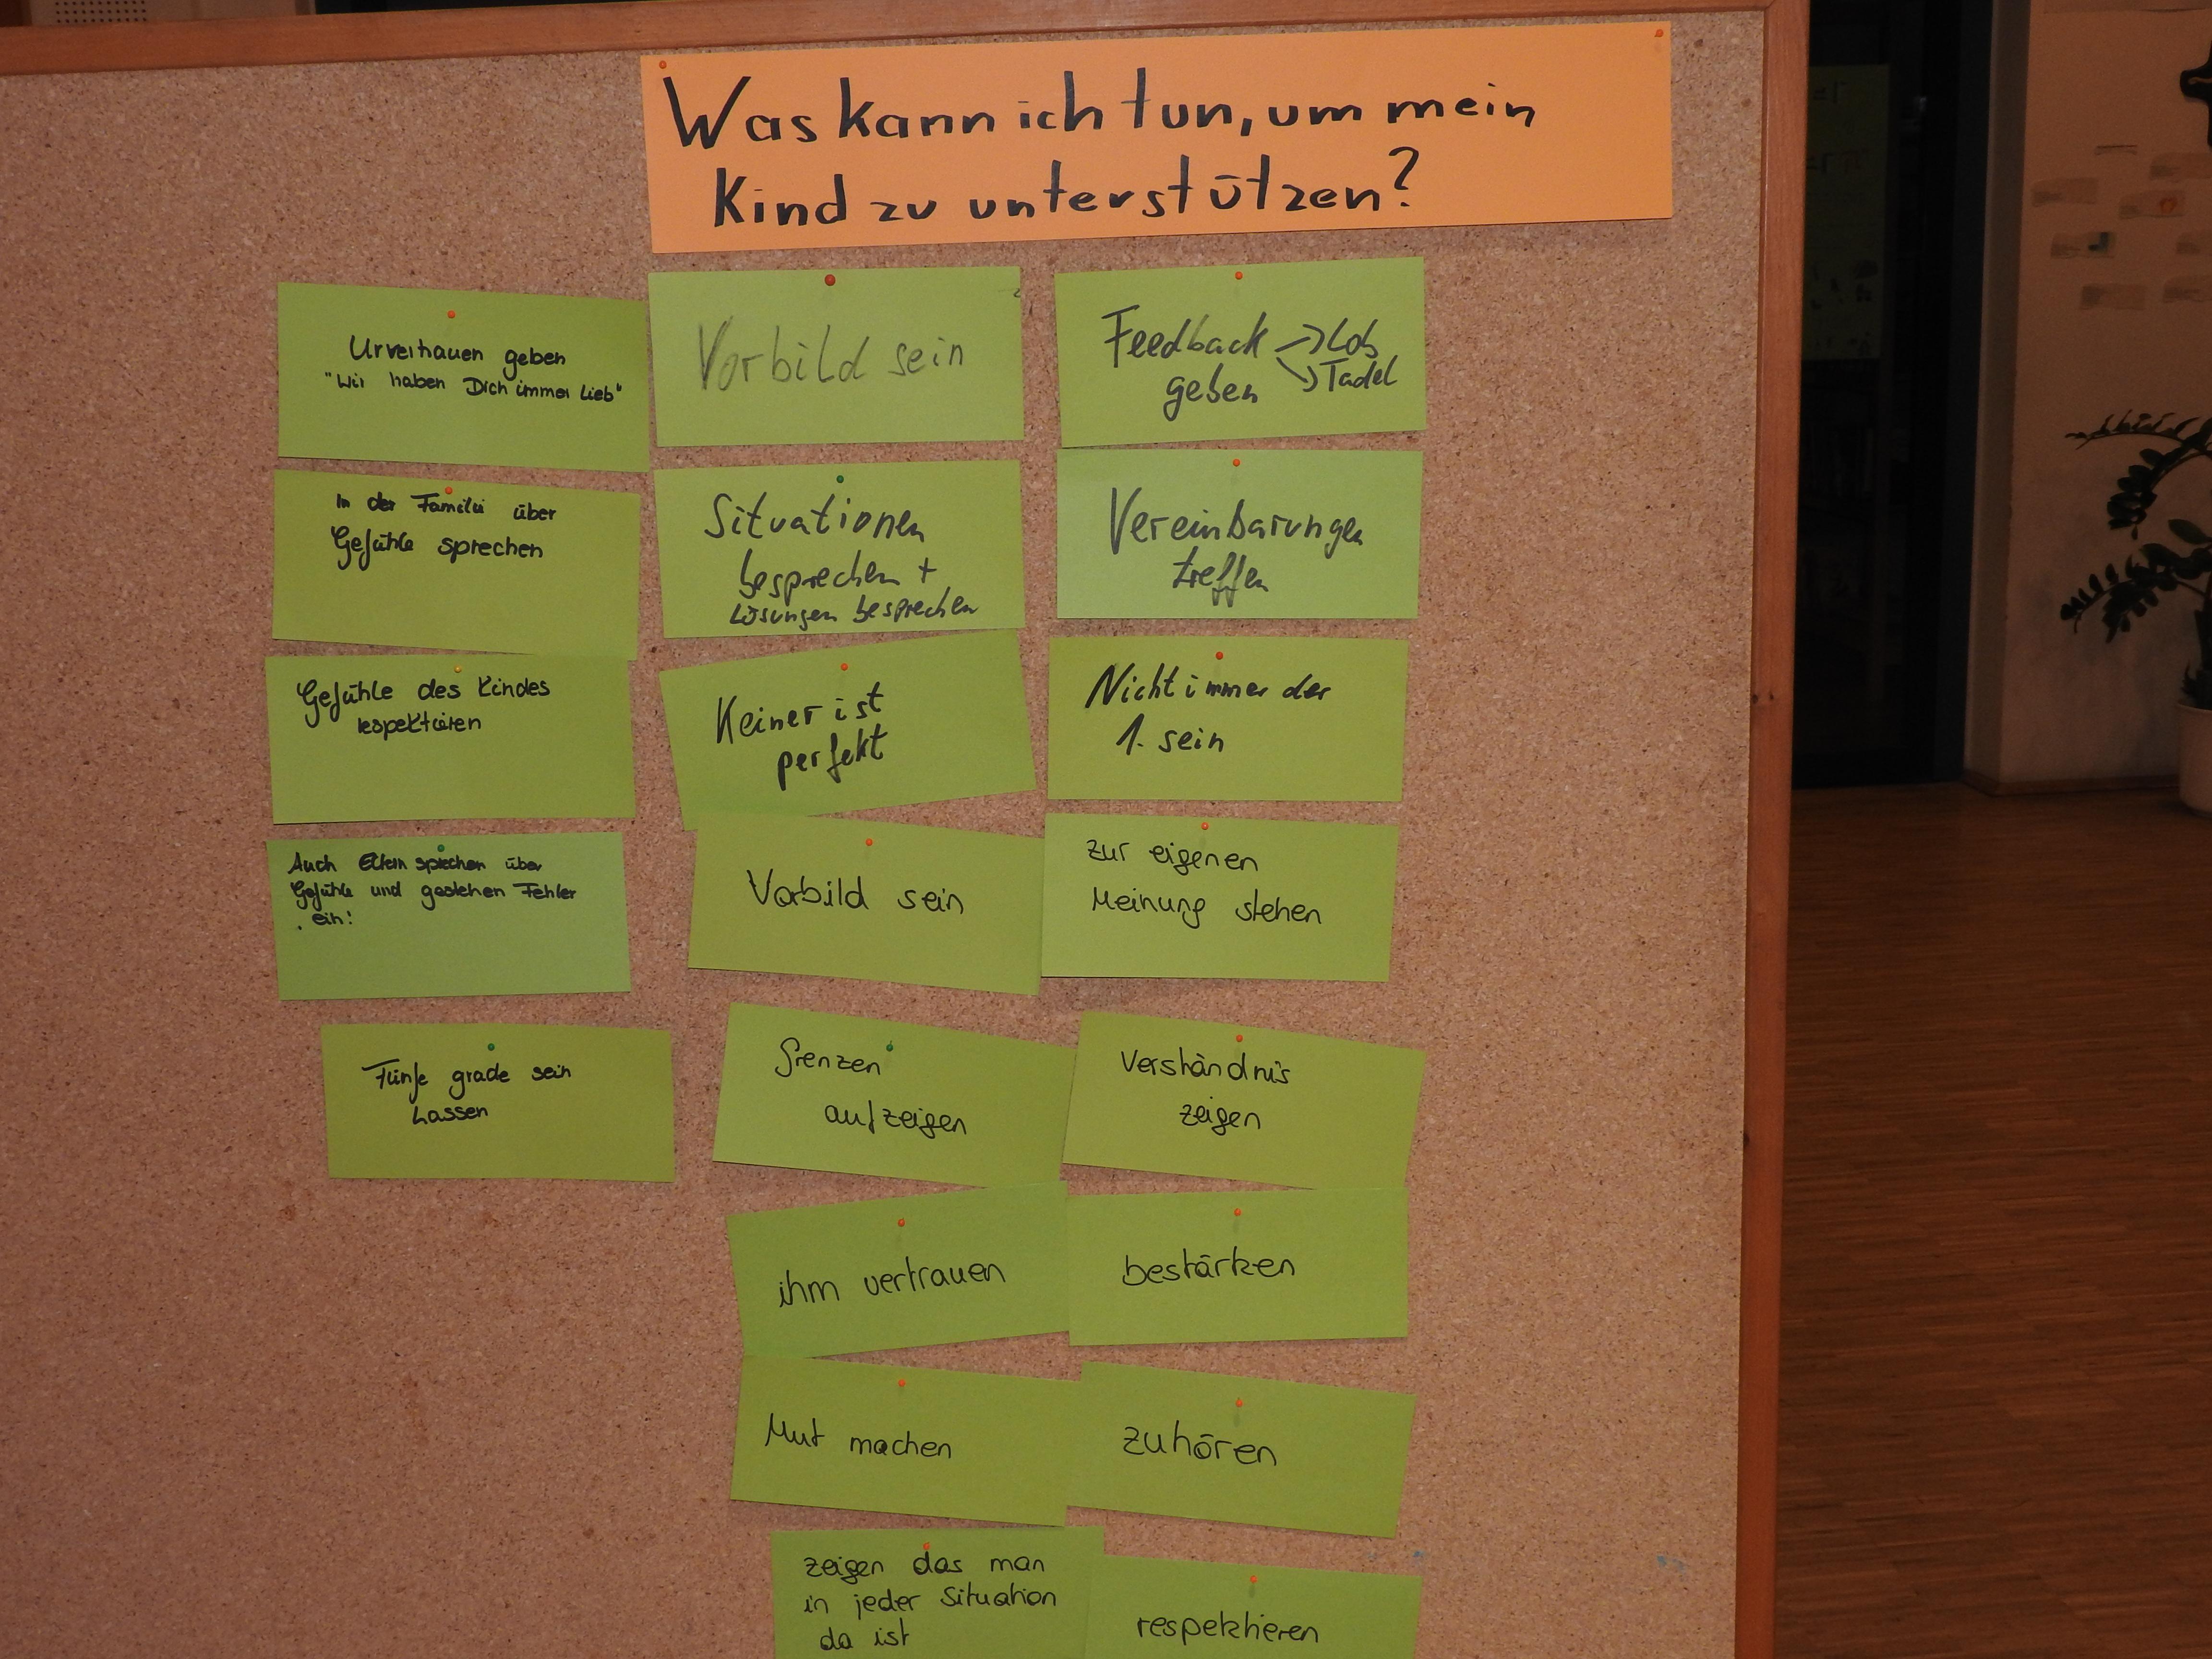 Was kann ich tun, um mein
Kind zu unterstützen?
Urvertrauen geben
"Wir haben Dich immer Lieb"
In der Familie über
Gefühle sprechen
Gefühle des Kindes
respektieren
Auch Eltern sprechen über
Gefühle und gestehen Fehler
ein!
Fünfe grade sein
Lassen
Vorbild sein
Situationen
besprechen +
Lösungen besprechen
Keiner ist
perfekt
Vorbild sein
Grenzen
aufzeigen
ihm vertrauen
Mut machen
zeigen das man
in jeder Situation
da ist
Feedback → Lob
geben → Tadel
Vereinbarungen
treffen
Nicht immer der
1. sein
zur eigenen
Meinung stehen
Verständnis
zeigen
bestärken
zuhören
respektieren